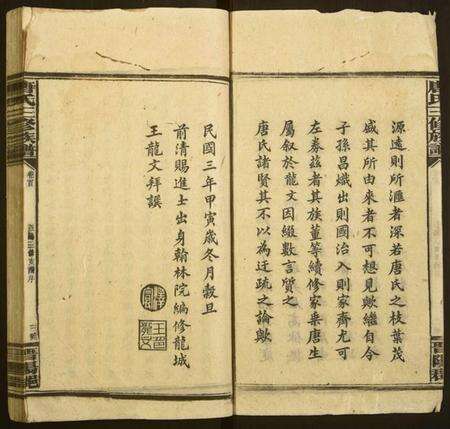 源遠則所滙者深若唐氏之枝葉茂
盛其所由來者不可想見歟繼自今
子孫昌熾出則國治入則家齊尤可
左券茲者其族董等續修家乘唐生
屬叙於龍文因綴數言質之
唐氏諸賢其不以為迂疏之論歟
民國三年甲寅歲冬月穀旦
前清賜進士出身翰林院編修龍城
王龍文拜譔
唐氏三修族譜
卷首